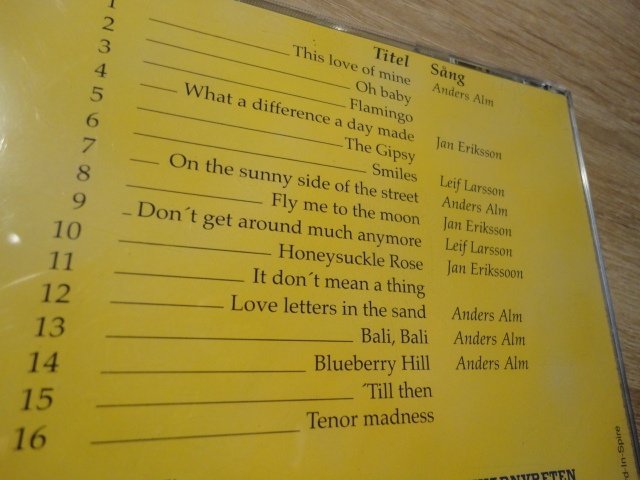 Titel Sång
1 This love of mine Anders Alm
2 Oh baby
3 Flamingo
4 What a difference a day made Jan Eriksson
5 The Gipsy
6 Smiles Leif Larsson
7 On the sunny side of the street Anders Alm
8 Fly me to the moon Jan Eriksson
9 Don´t get around much anymore Leif Larsson
10 Honeysuckle Rose Jan Erikssoon
11 It don´t mean a thing
12 Love letters in the sand Anders Alm
13 Bali, Bali Anders Alm
14 Blueberry Hill Anders Alm
15 ´Till then
16 Tenor madness